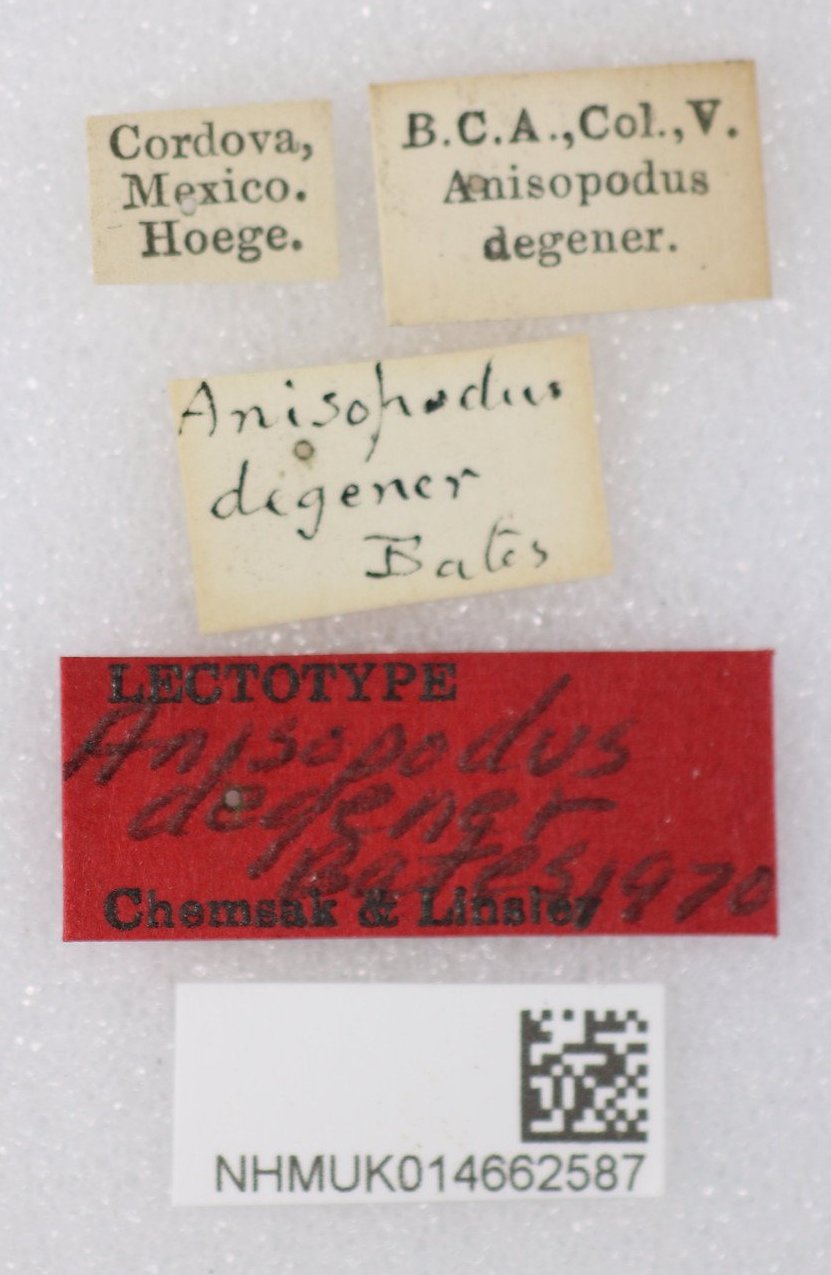 Cordova,
Mexico.
Hoege.
B.C.A.,Col.,V.
Anisopodus
degener.
Anisopodus
degener
Bates
LECTOTYPE
Anisopodus
degener
Bates, 1970
Chemsak & Linsley
NHMUK014662587